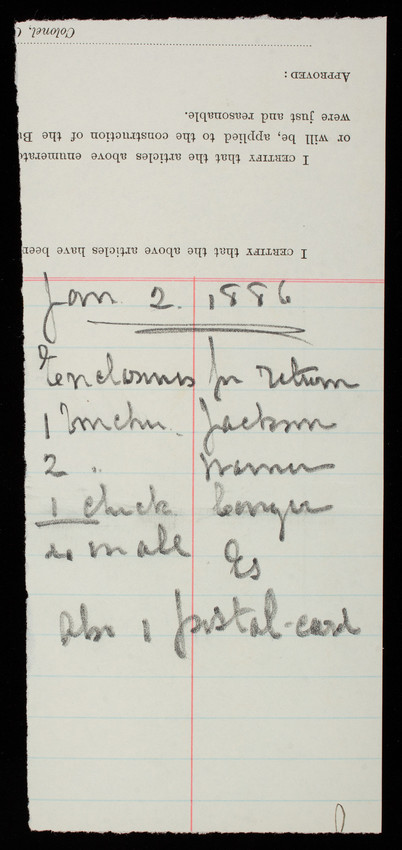 I CERTIFY that the above articles have been
I CERTIFY that the articles above enumerate
or will be, applied to the construction of the Bu
were just and reasonable.
APPROVED:
Colonel, C
Jan. 2. 1886
Enclosures for return
1 Voucher. Jackson
2 " Warner
1 check Conger
4 in all Es
also 1 postal-card